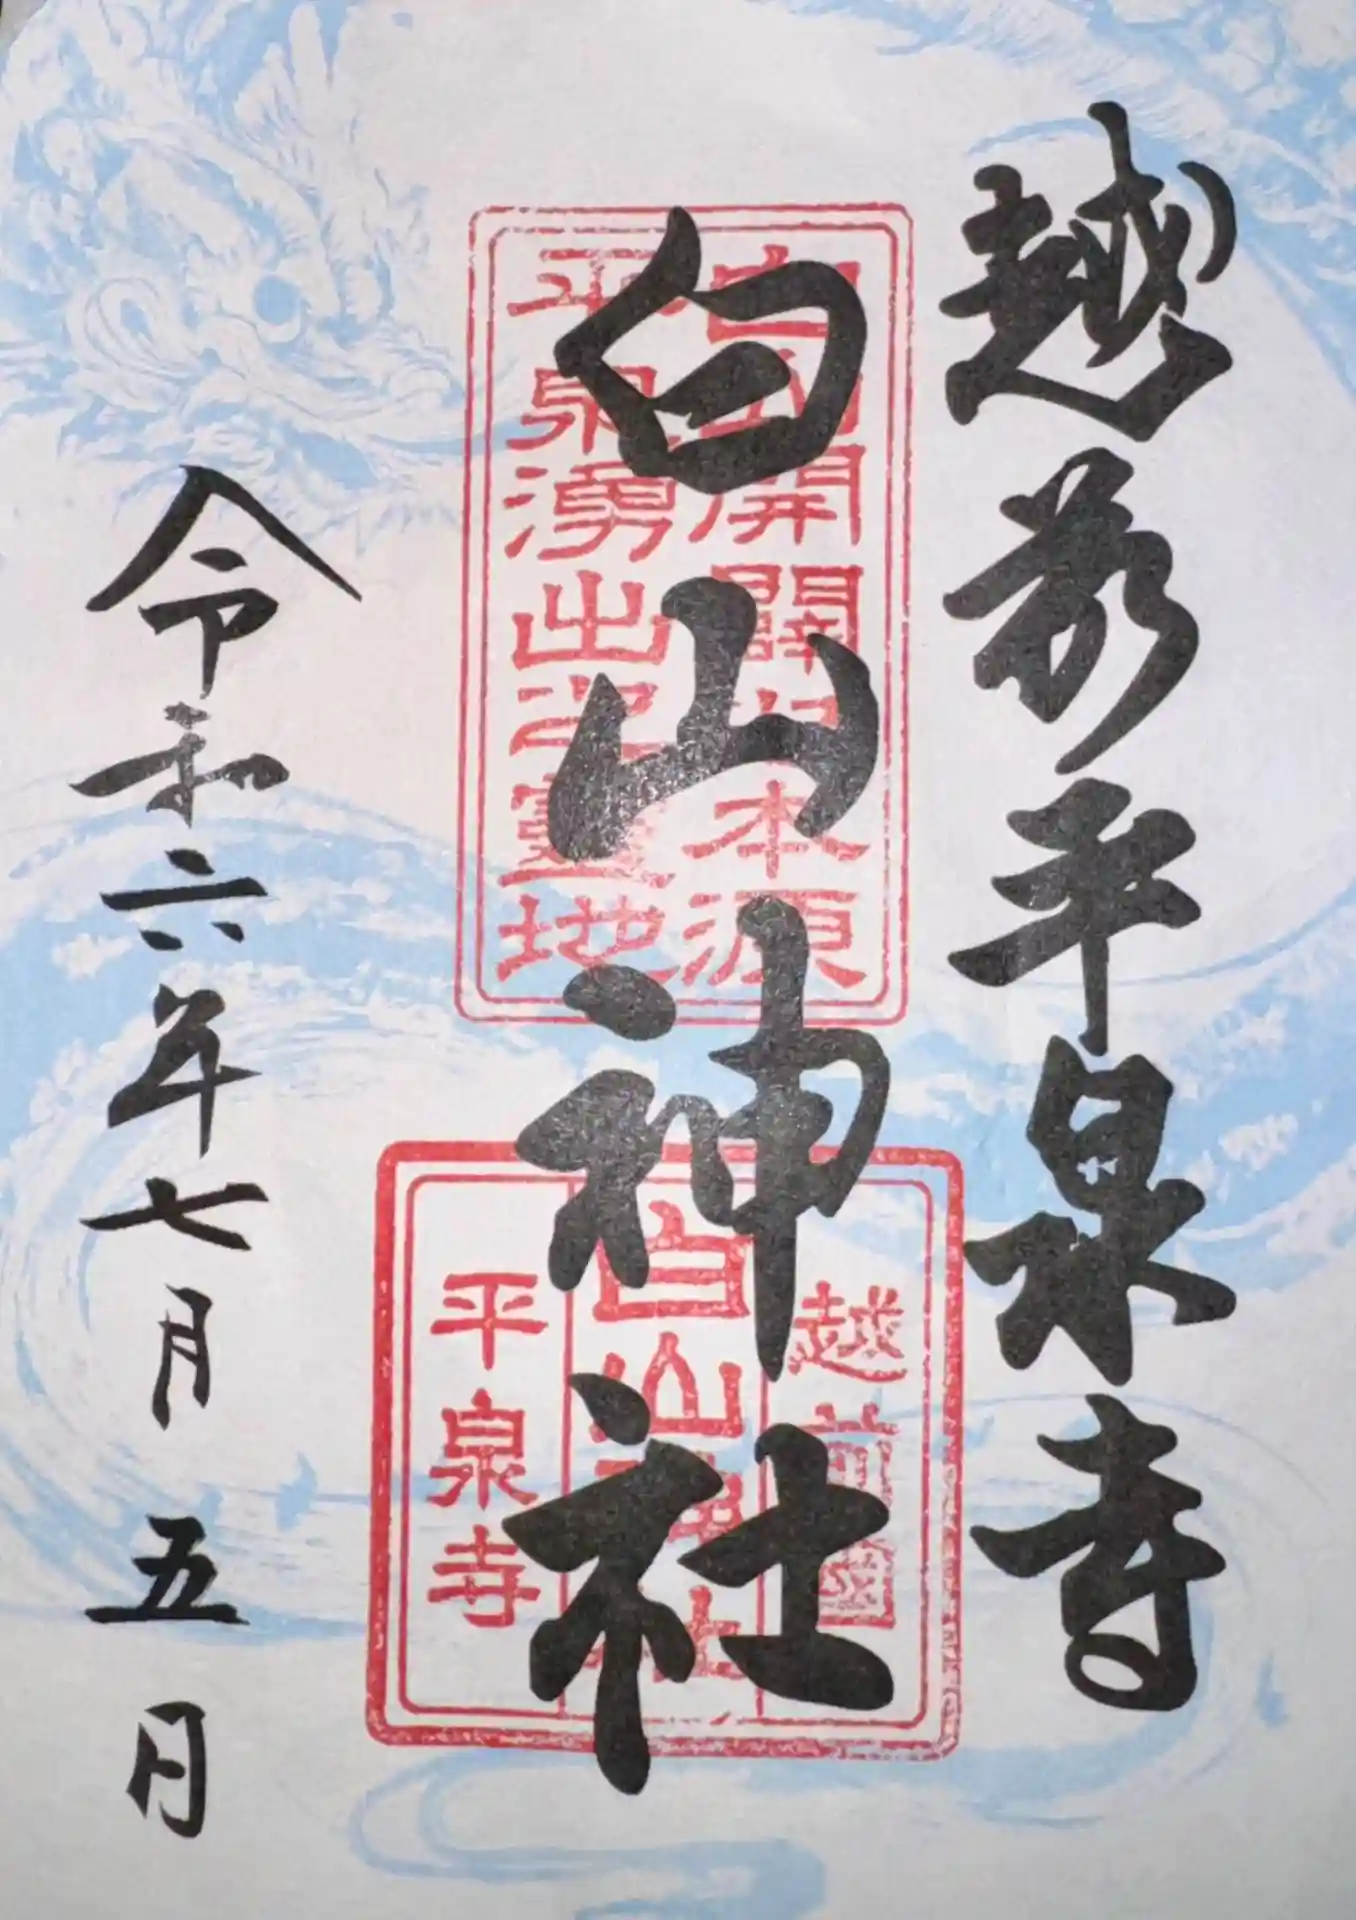 越前平泉寺
白山神社
令和六年七月五日
白山開闢之本源
平泉湧出之靈地
越前國
白山神社
平泉寺